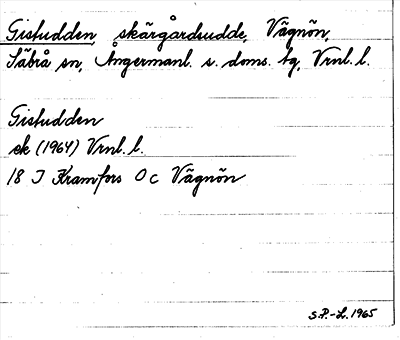 Gistudden, skärgårdsudde, Vägnön,
Säbrå sn, Ångermanl. s. doms. tg, Vrnl. l.
Gistudden
ek (1964) Vrnl. l.
18 I Kramfors O c Vägnön
S.P.-L. 1965